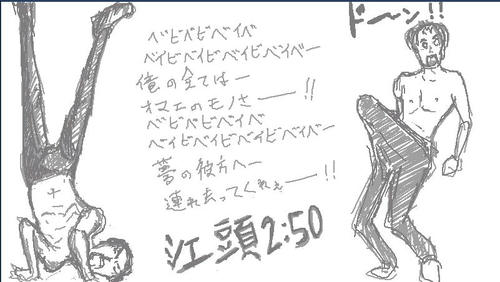 ベビベビベイベ
ベイビベイビベイビベイベー
俺の全てはー
オマエのモノさーー!!
ベビベビベイベ
ベイビベイビベイビベイベー
夢の彼方へー
連れ去ってくれぇーー!!
江頭2:50
ドーーン!!